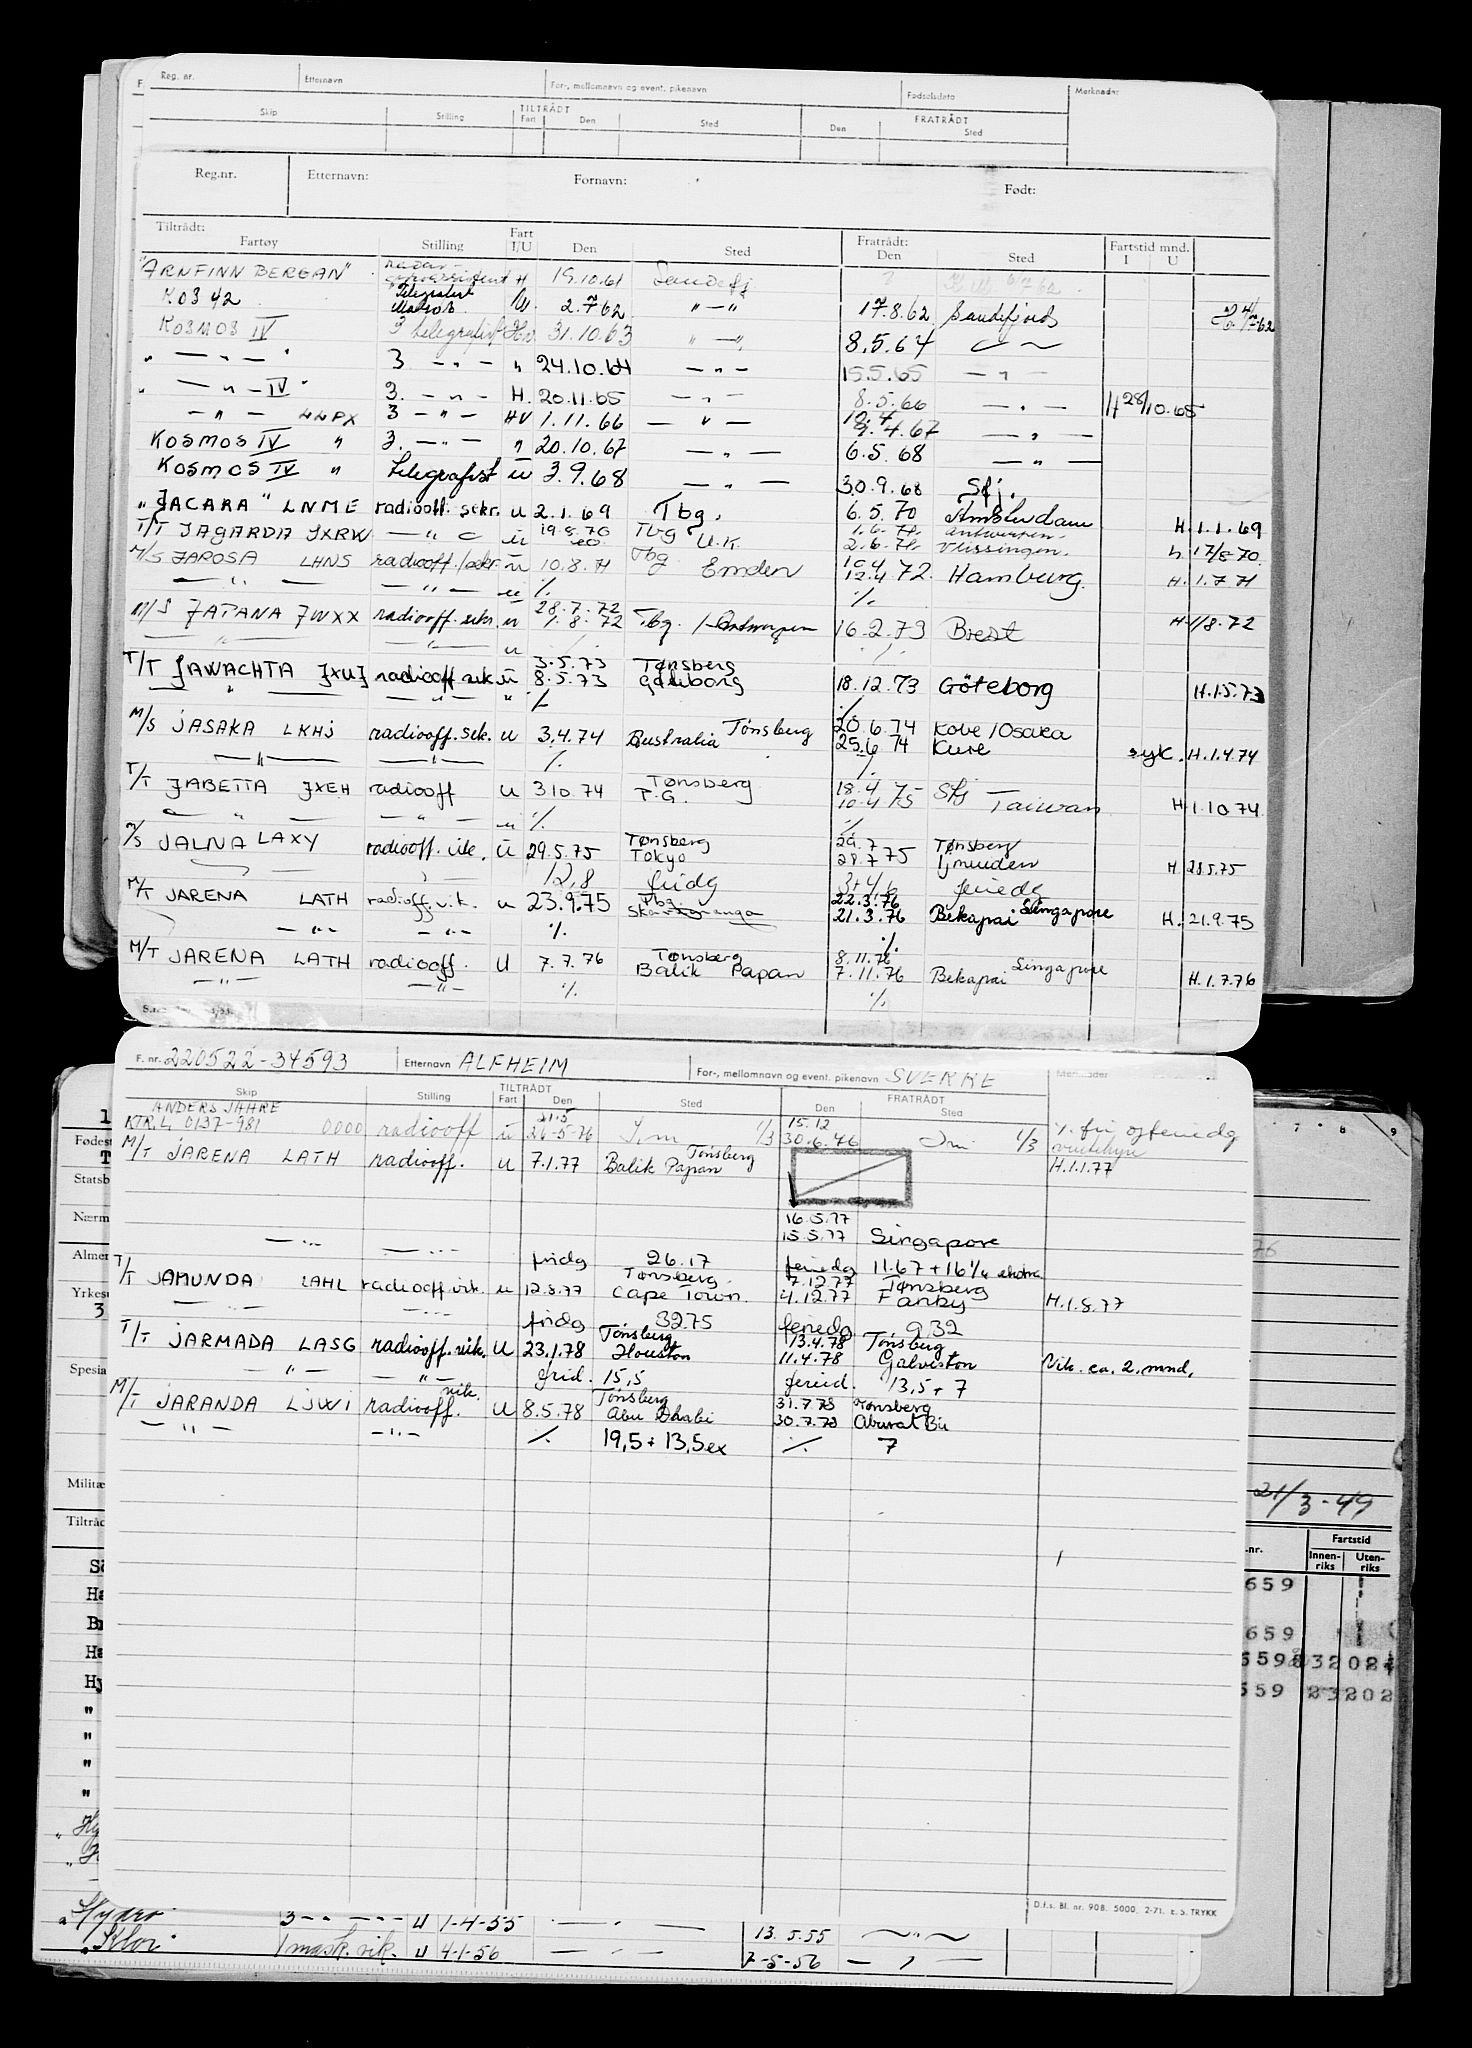 Reg. nr. Etternavn For-, mellomnavn og event. pikenavn Fødselsdato Merknader
TILTRÅDT FRATRÅDT
Skip Stilling Fart Den Sted Den Sted
Reg.nr. Etternavn: Fornavn: Født:
Tiltrådt: Fratrådt: Fartstid mnd.
Fartøy Stilling Fart I/U Den Sted Den Sted I U
"ARNFINN BERGAN" 19.10.61 Sandefj.
KOS 42 Telegrafist Matros 2.7.62 " — " 17.8.62 Sandefjord
KOSMOS IV 3 telegrafist 31.10.63 " — " 8.5.64
" — " — " 3 — " — " 24.10.64 — " — 15.5.65 — " —
" — " — IV " 3. — " — H. 20.11.65 — " — 8.5.66 — " — H 28/10.65
— " — LLPX 3 — " — HV 1.11.66 — " — 9.4.67 — " —
KOSMOS IV " 3. — " — " 20.10.67 — " — 6.5.68 — " —
KOSMOS IV " telegrafist u 3.9.68 — " — 30.9.68 Sfj.
"JACARA" LNME radiooff. sekr. u 2.1.69 Tbg. 6.5.70 Amsterdam H.1.1.69
T/T JAGARDA JXRW — " — u 19.8.70 Tbg U.K. 2.6.71 Antwerpen Vlissingen. h 17/8-70
M/S JAROSA LHNS radiooff/sekr. u 10.8.71 Tbg Emden 12.4.72. Hamburg H.1.7.71
— " — " — u % %
M/S JATANA JWXX radiooff.sekr. u 28.7.72 1.8.72 Tbg. / Antwerpen 16.2.73 Brest H.1/8.72
T/T JAWACHTA JXUJ radiooff sek. u 3.5.73 8.5.73 Tønsberg Gøteborg 18.12.73 Göteborg H.1.5.73
— " — — " — " %
M/S JASAKA LKHJ radiooff.sek. u 3.4.74 Australia Tønsberg 20.6.74 25.6.74 Kobe/Osaka Kure syk. H.1.4.74
— " — — " — % %
T/T JABETTA JXEH radiooff u 3.10.74 Tønsberg P.G. 18.4 10.4.75 Sfj Taiwan H.1.10.74
— " — — " — u % %
M/S JALNA LAXY radiooff.vik. u 29.5.75 Tønsberg Tokyo 29.7 28.7.75 Tønsberg Ijmuiden H. 28.5.75
12,8 fridg feriedg
M/T JARENA LATH radioff.vik. u 23.9.75 Tbg. 22.3.76 21.3.76 Bekapai Singapore H. 21.9.75
— " — — " — % %
M/T JARENA LATH radiooff. U 7.7.76 Tønsberg Balik Papan 8.11.76 7.11.76 Bekapai Singapore H.1.7.76
— " — — " — % %
F. nr. 220522-34593 Etternavn ALFHEIM For-, mellomnavn og event. pikenavn SVERRE Merknader
TILTRÅDT FRATRÅDT
Skip Stilling Fart Den Sted Den Sted
ANDERS JAHRE
KTR.L 0137-981 0000 radiooff u 1/3 15.12 1/3
M/T JARENA LATH radiooff. u 7.1.77 Balik Papan Tønsberg H.1.1.77
16.5.77
15.5.77 Singapore
— " — — " — fridg 26.17 feriedg 11.67 + 16 1/4 ekstra
T/T JAMUNDA LAHL radiooff.vik. u 12.8.77 Tønsberg Cape Town. 7.12.77 4.12.77 Tønsberg H.1.8.77
— " — — " — fridg 32.75 feriedg 9.32
T/T JARMADA LASG radiooff.vik. U 23.1.78 Tønsberg Houston 13.4.78 11.4.78 Tønsberg Galveston Vik. ca. 2. mnd.
— " — — " — frid. 15,5 feried. 13,5 + 7
M/T JARANDA LJWI radiooff. vik. U 8.5.78 Tønsberg Abu Dhabi 31.7.78 30.7.78 Tønsberg
— " — — " — % 19,5 + 13,5 ex % 7
D.f.s. Bl. nr. 908. 5000. 2-71. E.S. TRYKK
Statsb
Nærm
Almer
Yrkes
3
Spesia
Militæ
Tiltråd
21/3-49
-nr. Fartstid
Innen-riks Uten-riks
659
659
Hydro 3 — " — " — u 1-4-55 — " — 13.5.55 — " —
"Klor" 1 mask. vik. u 4-1-56 — " — 7-5-56 — " —